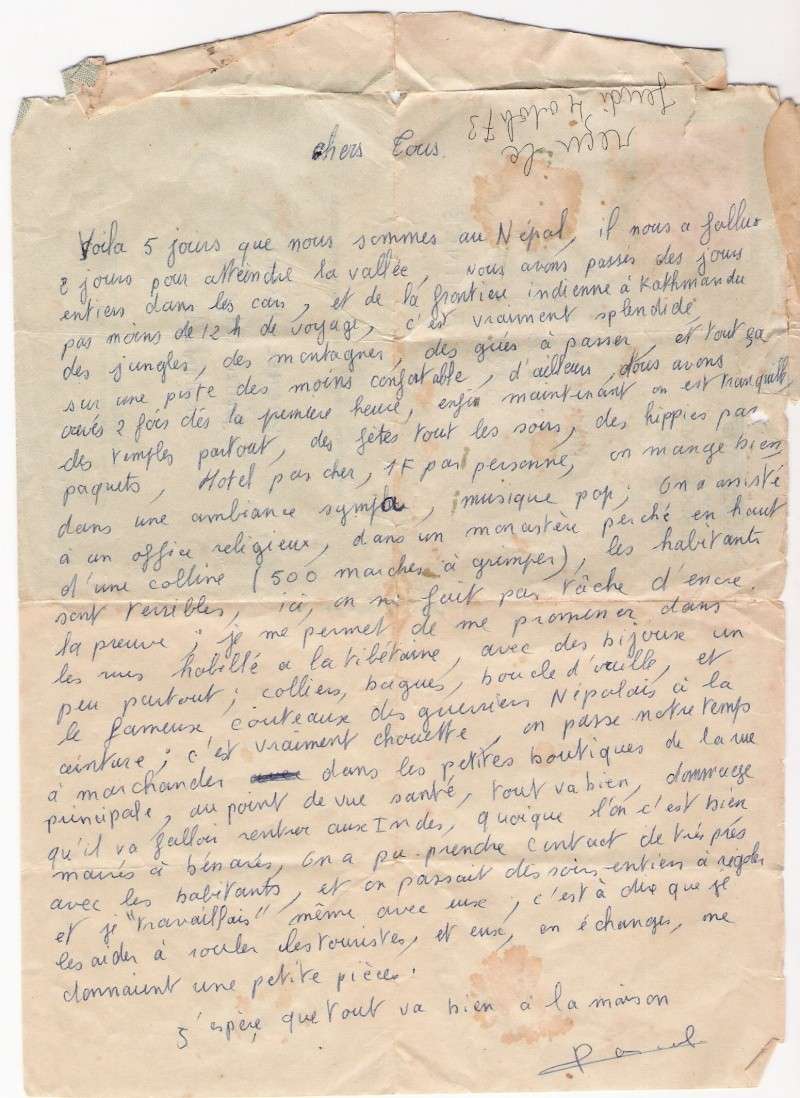 reçu le
Jeudi 4 octob 73
chers Tous.
Voila 5 jours que nous sommes au Népal, il nous a fallu
2 jours pour atteindre la vallée, nous avons passés des jours
entiers dans les cars, et de la frontière indienne à Kathmandu
pas moins de 12 h de voyage, c'est vraiment splendide
des jungles, des montagnes, des gués à passer, et tout ça
sur une piste des moins confortable, d'ailleurs, nous avons
crevés 2 fois dès la première heure, enfin maintenant on est tranquille,
des temples partout, des fêtes tout les soirs, des hippies par
paquets, Hotel pas cher, 1F par personne, on mange bien
dans une ambiance sympa, musique pop; On a assisté
à un office religieux, dans un monastère perché en haut
d'une colline (500 marches à grimper), les habitants
sont terribles, ici, on ne fait pas tâche d'encre
la preuve; je me permet de me promener dans
les rues habillé a la tibétaine, avec des bijoux un
peu partout; colliers, bagues, boucle d'oreille, et
le fameux couteaux des guerriers Népalais à la
ceinture; c'est vraiment chouette, on passe notre temps
à marchander dans les petites boutiques de la rue
principale, au point de vue santé, tout va bien, dommage
qu'il va falloir rentrer aux Indes, quoique l'on c'est bien
marrés à bénarès, On a pu prendre contact de très près
avec les habitants, et on passait des soirs entiers à rigoler
et je "travaillais" même avec eux; c'est à dire que je
les aider à rouler les touristes, et eux, en échanges, me
donnaient une petite pièces!
J'espère que tout va bien à la maison